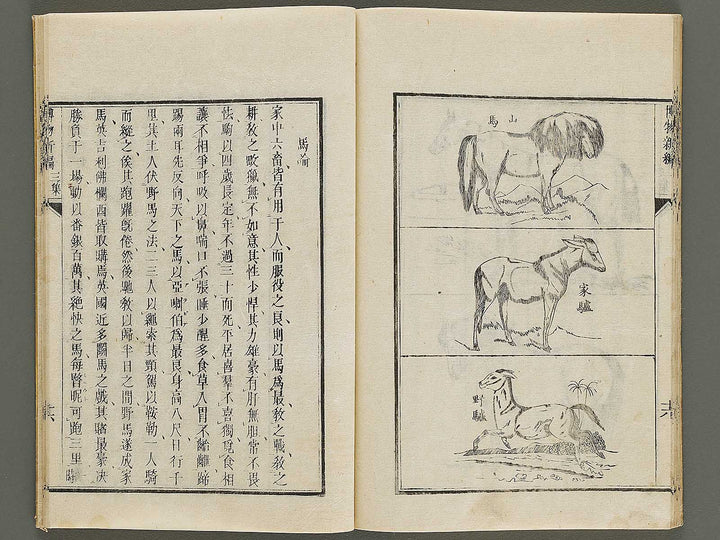 博物新編
山馬
家驢
野驢
馬論
家中六畜皆有用于人而服役之良則以馬為最教之戰教之
耕教之畋獵無不如意其性少悍其力雄豪有肝無胆常不畏
怯齒以四歲長定年不過三十而死平居喜羣不喜獨覓食相
讓不相爭呼吸以鼻喘口不張睡少醒多食草入胃不齝離蹄
踢兩耳先反向天下之馬以亞喇伯為最良身高八尺日行千
里其土人伏野馬之法二三人以繩索其頸駕以鞍勒一人騎
而縱之俟其跑躍既倦然後馳教以歸半日之間野馬遂成家
馬英吉利佛欄西皆取購焉英國近多鬭馬之戲其賭最豪決
勝負于一場動以番銀百萬其絕快之馬每瞥眤可跑三里
博物新編 三集